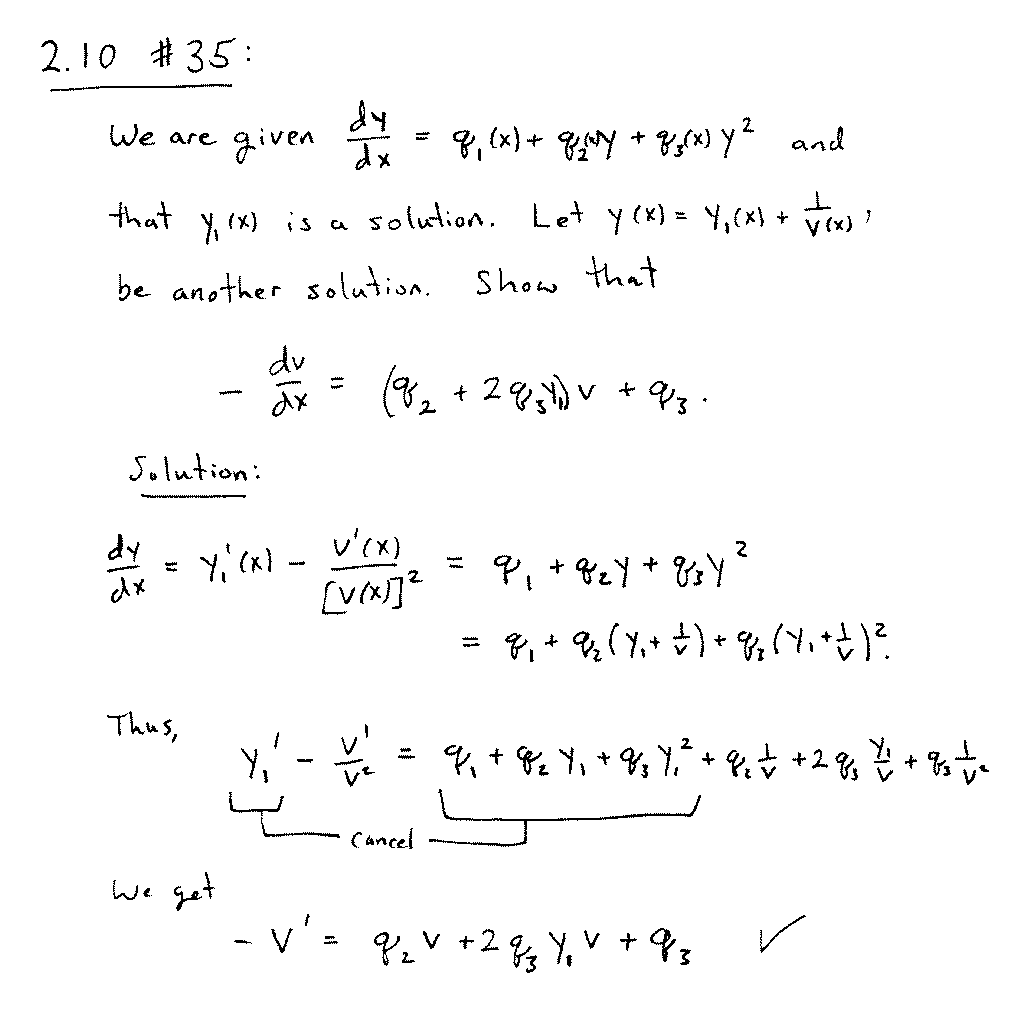 2.10 #35:
We are given dy/dx = q₁(x) + q₂(x)y + q₃(x) y² and
that y₁(x) is a solution. Let y(x) = y₁(x) + 1/v(x),
be another solution. Show that
- dv/dx = (q₂ + 2q₃y₁)v + q₃.
Solution:
dy/dx = y₁'(x) - v'(x)/[v(x)]² = q₁ + q₂y + q₃y²
= q₁ + q₂(y₁ + 1/v) + q₃(y₁ + 1/v)².
Thus,
y₁' - v'/v² = q₁ + q₂ y₁ + q₃ y₁² + q₂ 1/v + 2 q₃ y₁/v + q₃ 1/v²
cancel
We get
- v' = q₂ v + 2 q₃ y₁ v + q₃ ✓